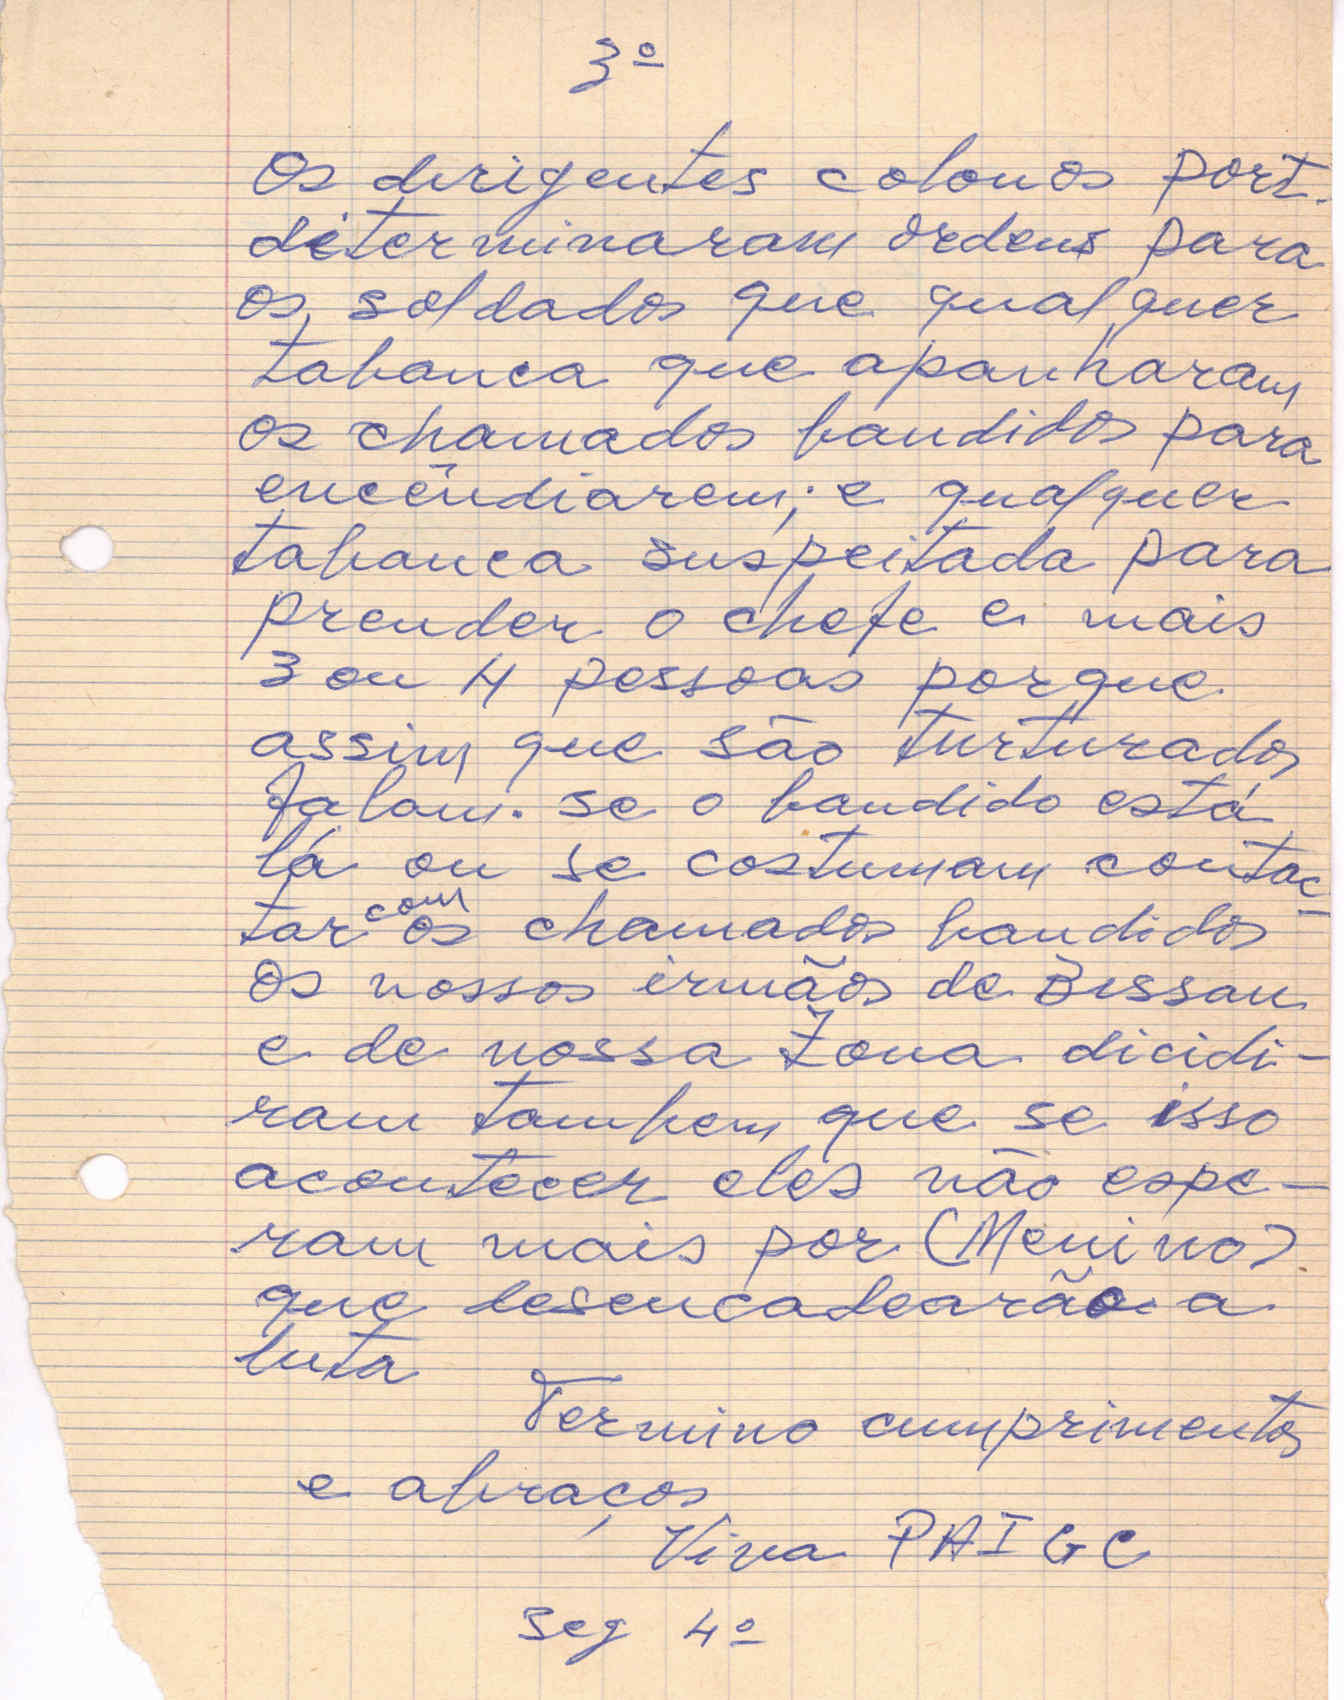 3º
Os dirigentes colonos port.
diterminaram ordens para
os soldados que qualquer
tabanca que apanharam
os chamados bandidos para
encêndiarem; e qualquer
tabanca suspeitada para
prender o chefe e mais
3 ou 4 pessoas porque
assim que são turturados
falam. se o bandido está
lá ou se costumam contac-
tar com os chamados bandidos
Os nossos irmãos de Bissau
e de nossa Zona dicidi-
ram tambem que se isso
acontecer eles não espe-
ram mais por (Menino)
que desencadearão a
luta
Termino cumprimentos
e abraços
Viva PAIGC
Seg 4º